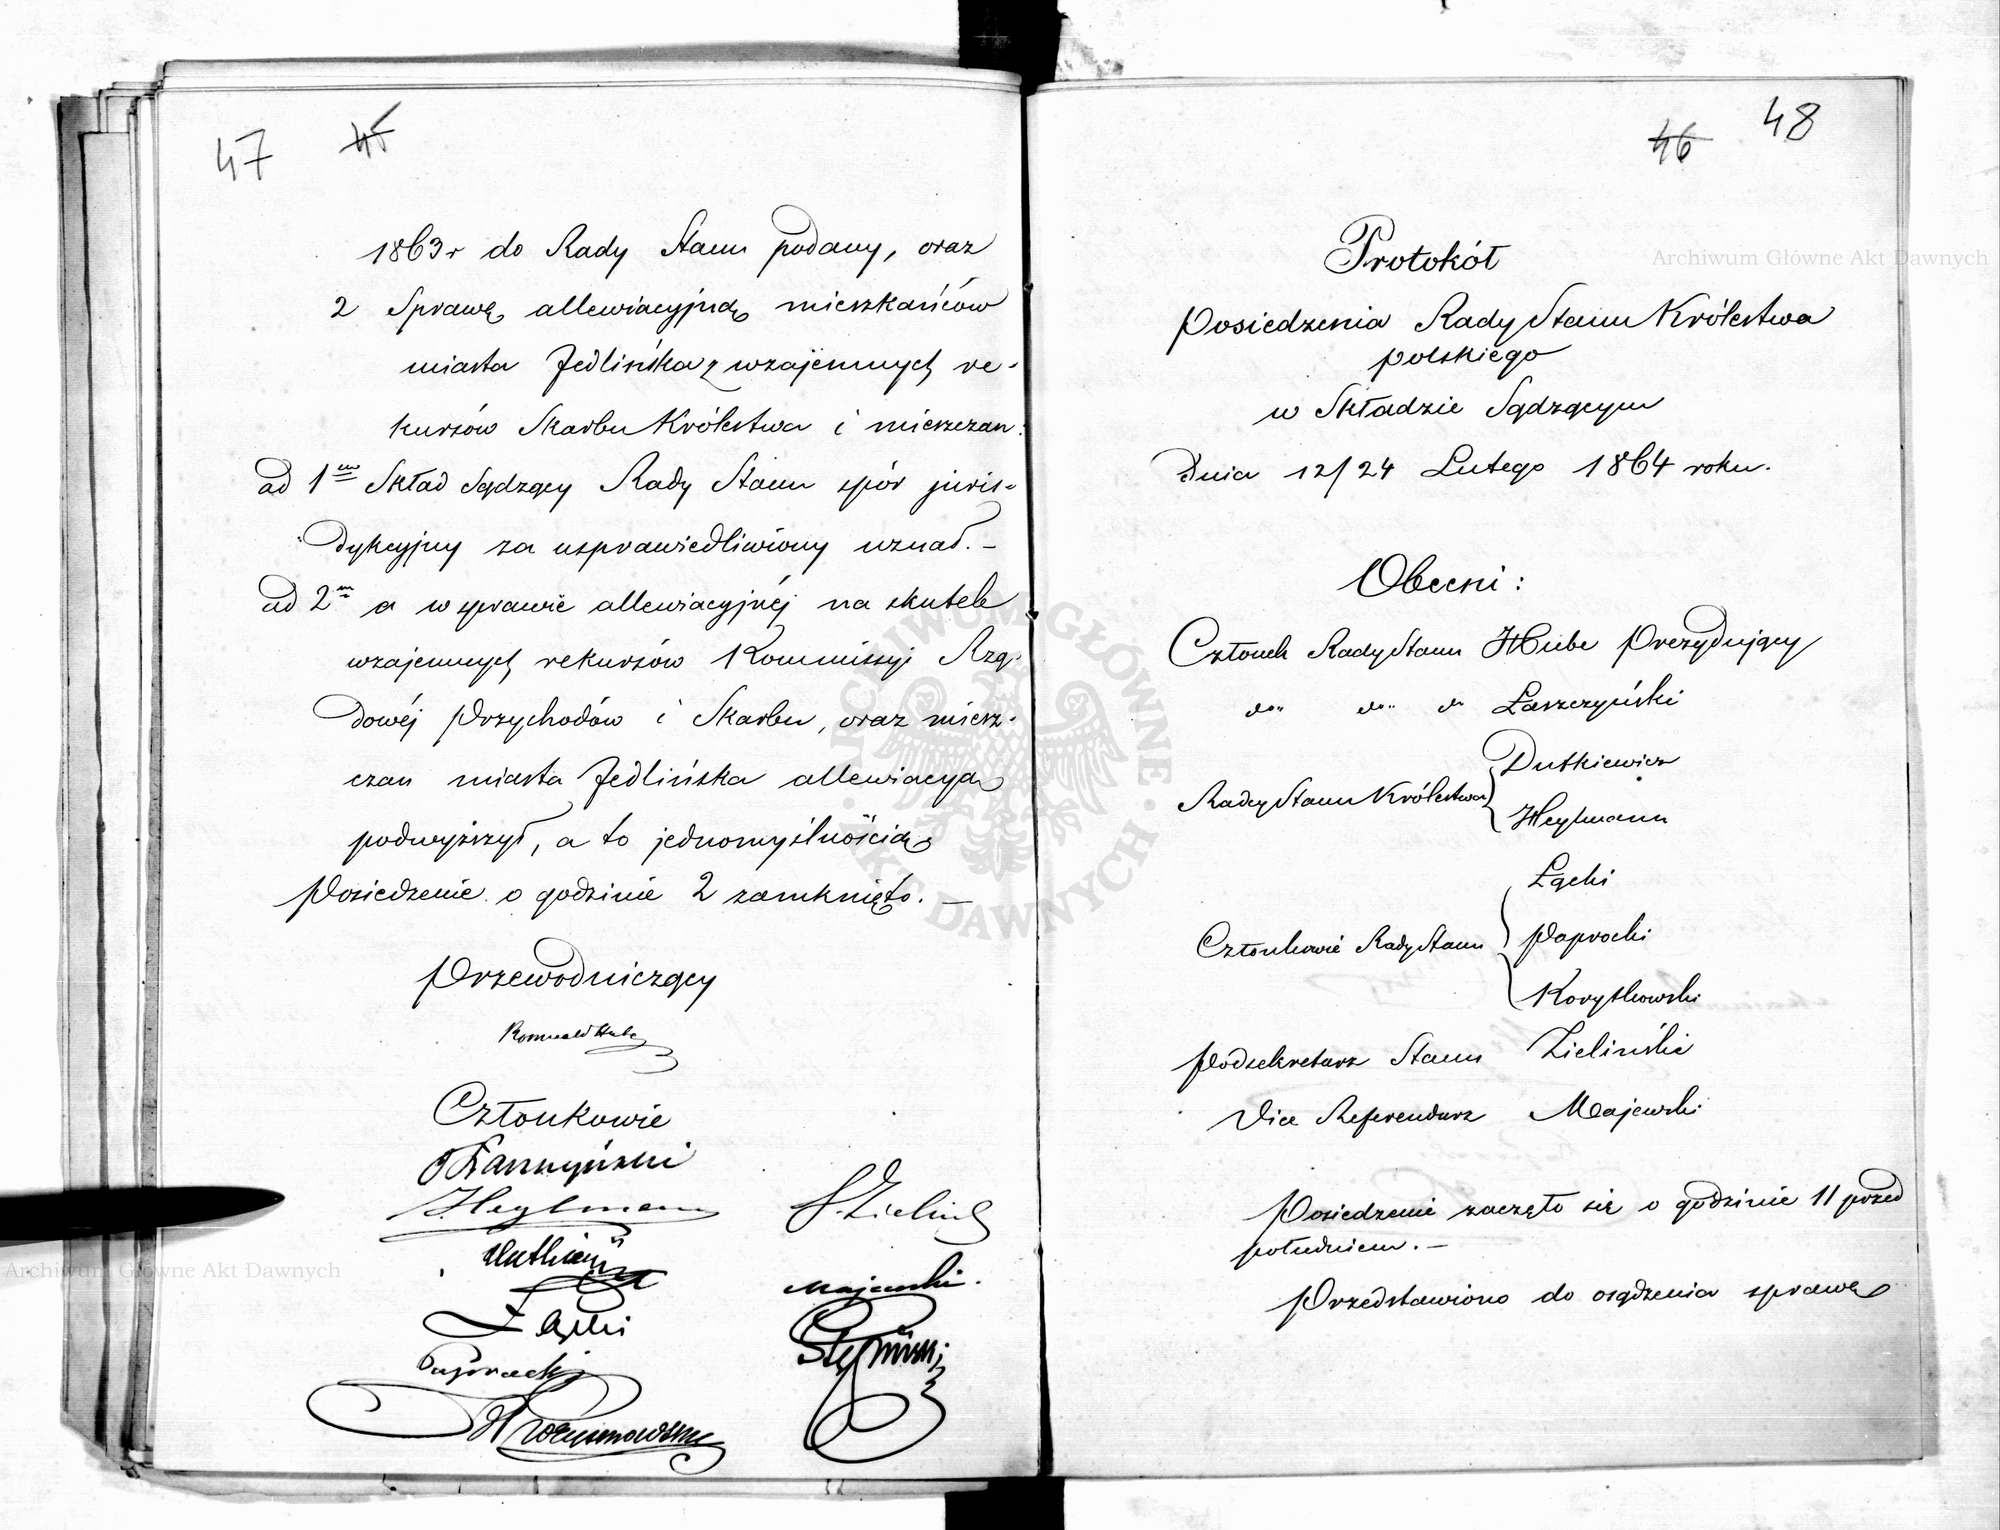 47 45
1863 r do Rady Stanu podany, oraz
2 Sprawę allewiacyjną mieszkańców
miasta Jedlińska z wzajemnych re-
kursów Skarbu Królestwa i mieszczan:
ad 1m Skład Sądzący Rady Stanu spór juris-
dykcyjny za usprawiedliwiony uznał. –
ad 2m a w sprawie allewiacyjnéj na skutek
wzajemnych rekursów Kommissyi Rzą-
dowéj Przychodów i Skarbu, oraz miesz-
czan miasta Jedlińska allewiacyą
podwyższył, a to jednomyślnością
Posiedzenie o godzinie 2 zamknięto. –
Przewodniczący
Romuald Hube
Członkowie
Łaszczyński
J. Heylmann
Dutkiewicz
Łącki
Paprocki
S. Zieliński
Majewski.
48
46
Protokół
Posiedzenia Rady Stanu Królestwa
polskiego
w Składzie Sądzącym
Dnia 12/24 Lutego 1864 roku.
Obecni:
Członek Rady Stanu Hube Prezydujący
do do do Łaszczyński
Radcy Stanu Królestwa Dutkiewicz
Heylmann
Łącki
Członkowie Rady Stanu Paprocki
Korytkowski
Podsekretarz Stanu Zieliński
Vice Referendarz Majewski
Posiedzenie zaczęto się o godzinie 11 przed
południem. –
Przedstawiono do osądzenia sprawę
Archiwum Główne Akt Dawnych
Archiwum Główne Akt Dawnych
ARCHIWUM GŁÓWNE AKT DAWNYCH